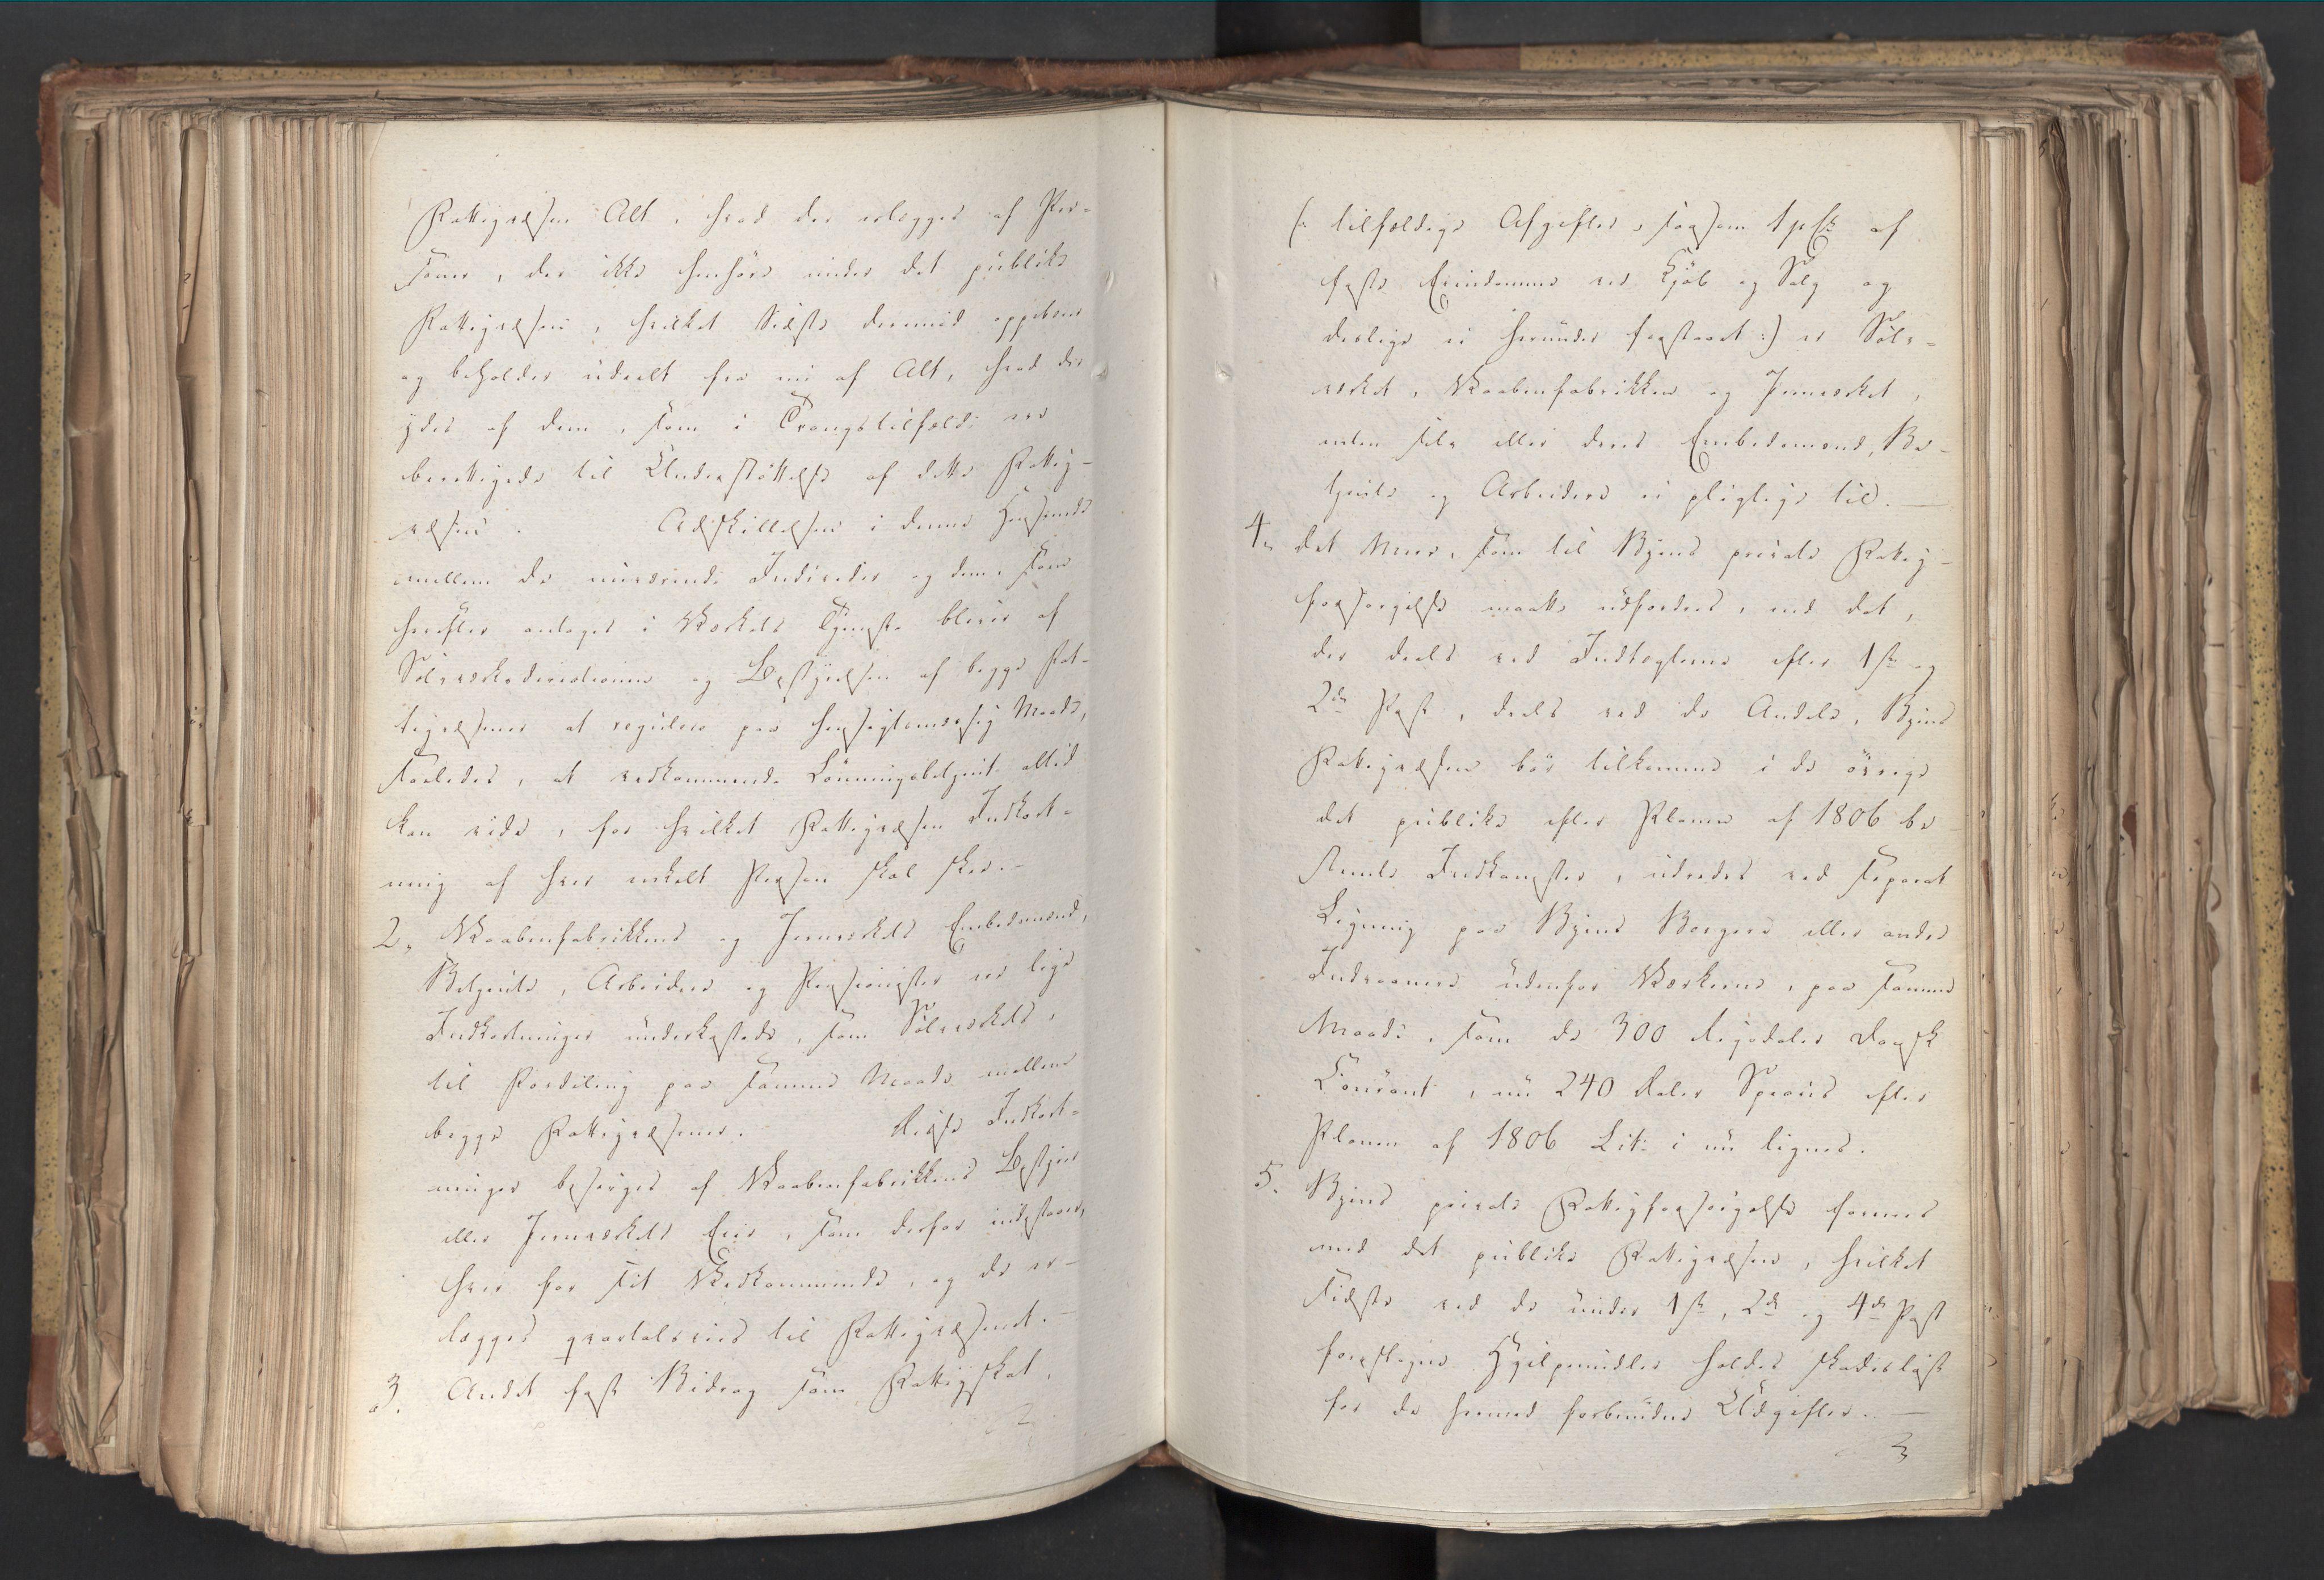 Fattigvæsen Alt, hvad der erlægges af Per-
soner, der ikke henhøre under det publike
Fattigvæsen, hvilket Sidste derimod oppebær
og beholder udeelt fra nu af Alt, hvad der
ydes af dem, som i Trangstilfælde ere
berettigede til Understøttelse af dette Fattig-
væsen. Adskillelsen i denne Henseende
mellem de nuværende Individer og dem, som
herefter antages i Værkets Tjeneste bliver af
Sølvværksdirectionen og Bestyrelsen af begge Fat-
tigvæsener at regulere paa hensigtsmæssig Maade,
saaledes, at vedkommende Lønningsbetjent altid
kan vide, for hvilket Fattigvæsen Indkort-
ning af hver enkelt Person skal skee. -
2, Vaabenfabrikkens og Jernværkets Embedsmænd,
Betjente, Arbeidere og Pensionister ere lige
Indkortninger underkastede, som Sølvværkets,
til Fordeling paa samme Maade mellem
begge Fattigvæsener. Disse Indkort-
ninger besørges af Vaabenfabrikkens Bestyrer
eller Jernværkets Eier, som derfor indestaaer,
hver for sit Vedkommende, og de er-
lægges qvartalsviis til Fattigvæsenet. -
3. Andet fast Bidrag som Fattigskat,
(: tilfældige Afgifter, saasom 1 p Ct. af
faste Eiendomme ved Kjøb og Salg og
deslige ei herunder forstaaet :) er Sølv-
værket, Vaabenfabrikken og Jernværket,
enten selv eller deres Embedsmænd, Be-
tjente og Arbeidere ei pligtige til. -
4, Det Meer, som til Byens private Fattig-
forsørgelse maatte udfordres, end det,
der deels ved Indtægterne efter 1ste og
2den Post, deels ved de Andele, Byens
Fattigvæsen bør tilkomme i de øvrige
det publike efter Planen af 1806 be-
stemte Indkomster, udredes ved separat
Ligning paa Byens Borgere eller andre
Indvaanere udenfor Værkerne, paa samme
Maade, som de 300 Rigsdaler Dansk
Courant, nu 240 Daler Species efter
Planen af 1806 Lit: i nu lignes.
5. Byens private Fattigforsørgelse forenes
med det publike Fattigvæsen, hvilket
sidste ved de under 1ste, 2den og 4de Post
foreslagne Hjelpemidler holdes skadesløst
for de hermed forbundne Udgifter. -